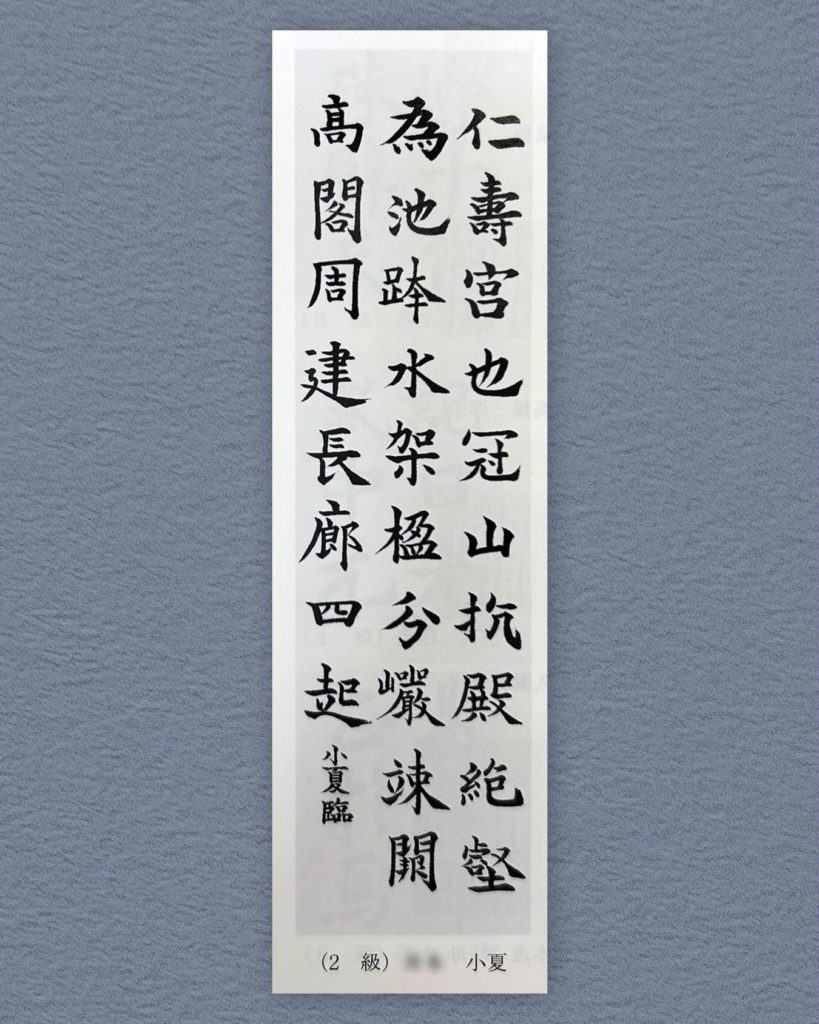 仁壽宮也冠山抗殿絶壑
為池跨水架楹分巖竦闕
高閣周建長廊四起
小夏臨
（2 級） 小夏